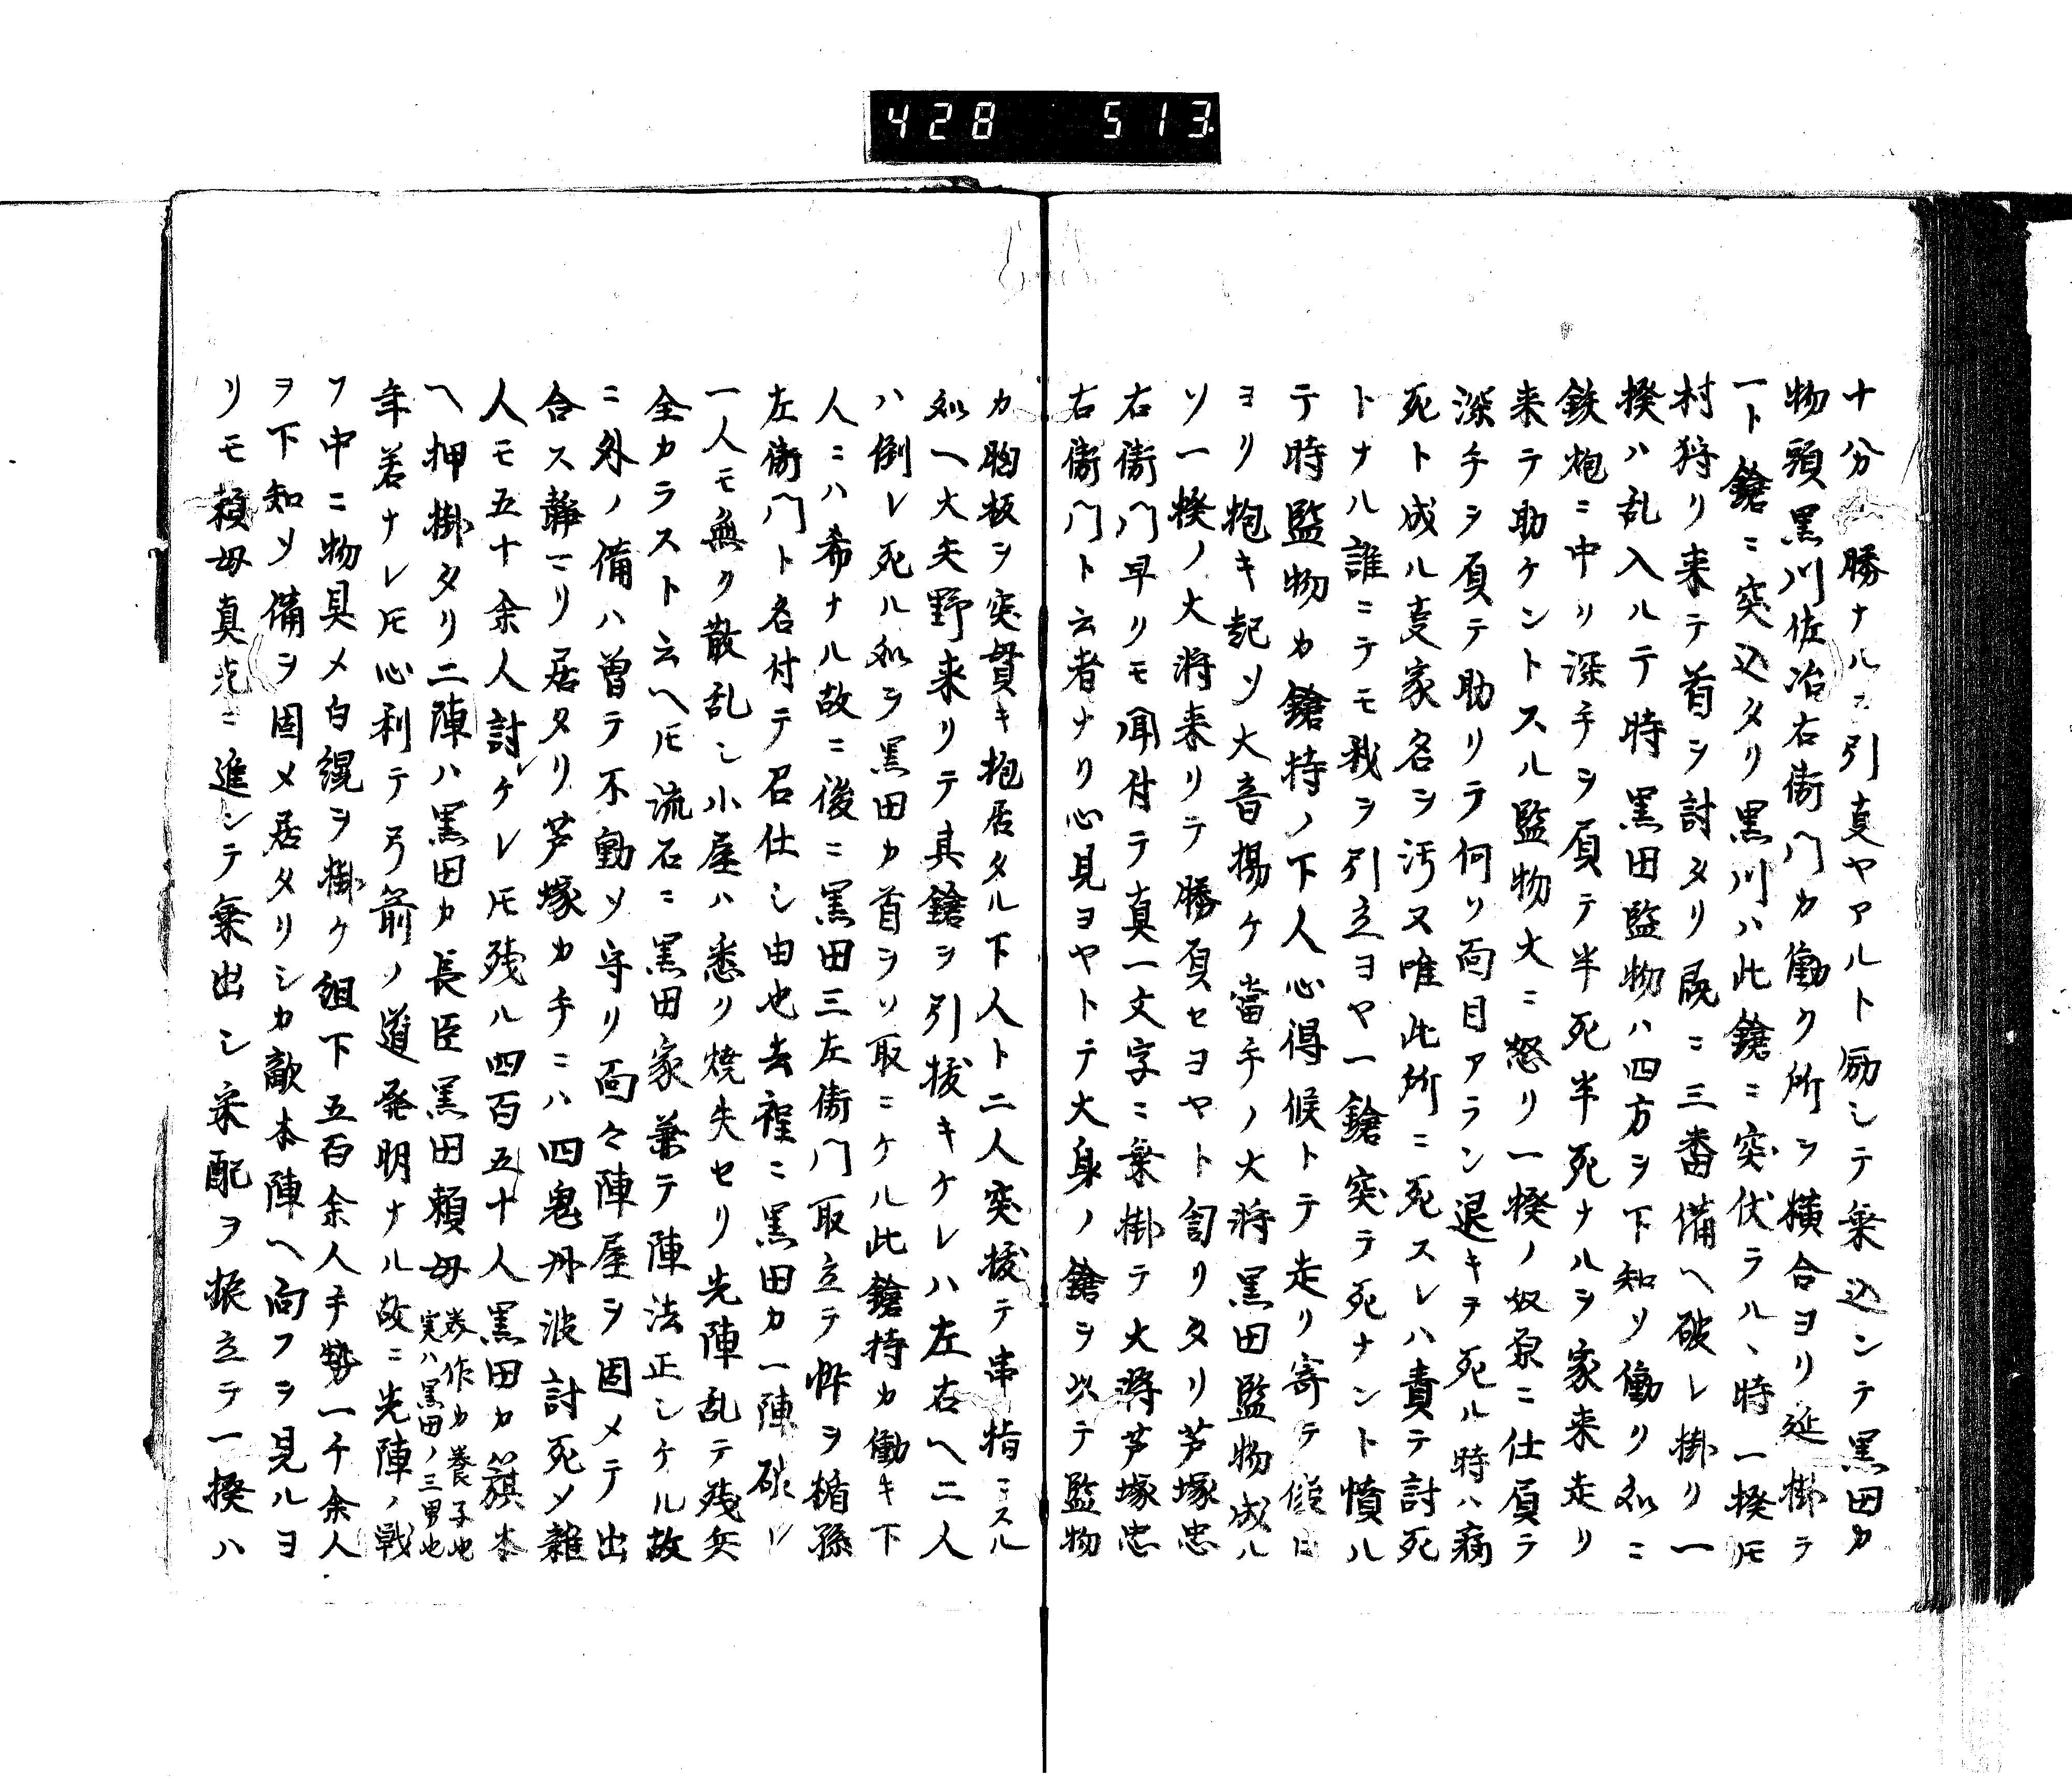 428 513
十分ノ勝ナルニ引夏ヤアルト励シテ乗込ンテ黒田カ
物頭黒川佐治右衛門カ働ク所ヲ横合ヨリ延掛テ
一ト鎗ニ突込タリ黒川ハ此鎗ニ突伏ラル丶時一揆𪜈
村狩リ来テ首ヲ討タリ既ニ三番備ヘ破レ掛リ一
揆ハ乱入ルテ時黒田監物ハ四方ヲ下知ソ働リ処ニ
鉄炮ニ中リ深手ヲ負テ半死半死ナルヲ家来走リ
来テ助ケントスル監物大ニ怒リ一揆ノ奴原ニ仕負テ
深手ヲ負テ助リテ何ソ面目アラン退キテ死ル時ハ病
死ト成ル夏家名ヲ汚ス唯此所ニ死スレハ責テ討死
トナル誰ニテモ我ヲ引立ヨヤ一鎗突テ死ナント憤ル
テ時監物カ鎗持ノ下人心得候トテ走リ寄テ後ロ
ヨリ抱キ起ソ大音揚ケ當手ノ大将黒田監物成ル
ソ一揆ノ大将来リテ勝負セヨヤト訇リタリ芦塚忠
右衛門早リモ聞付テ真一文字ニ乗掛テ大将芦塚忠
右衛門ト云者ナリ心見ヨヤトテ大身ノ鎗ヲ以テ監物
カ胸板ヲ突貫キ抱居タル下人ト二人突抜テ串指ニスル
処ヘ大矢野来リテ其鎗ヲ引抜キケレハ左右ヘ二人
ハ倒レ死ル処ヲ黒田カ首ヲソ取ニケル此鎗持カ働キ下
人ニハ希ナル故ニ後ニ黒田三左衛門取立テ悴ヲ楯孫
左衛門ト名付テ召仕シ由也去程ニ黒田カ一陣破レ
一人モ無ク散乱シ小屋ハ悉リ焼失セリ先陣乱テ残兵
全カラスト云ヘ𪜈流石ニ黒田家兼テ陣法正シケル故
ニ外ノ備ハ曽テ不動ソ守リ面々陣屋ヲ固メテ出
合ス静マリ居タリ芦塚カ手ニハ四鬼丹波討死ソ雑
人モ五十余人討レケレ𪜈残ル四百五十人黒田カ籏本
ヘ押掛タリ二陣ハ黒田カ長臣黒田頼母 養作カ養子也 実ハ黒田ノ三男也
年若ナレ𪜈心利テ弓箭ノ道発明ナル故ニ先陣ノ戦
フ中ニ物具メ白緄ヲ掛ケ組下五百余人手勢一千余人
ヲ下知ソ備ヲ固メ居タリシカ敵本陣ヘ向フヲ見ルヨ
リモ頼母真先ニ進ンテ乗出シ采配ヲ振立テ一揆ハ